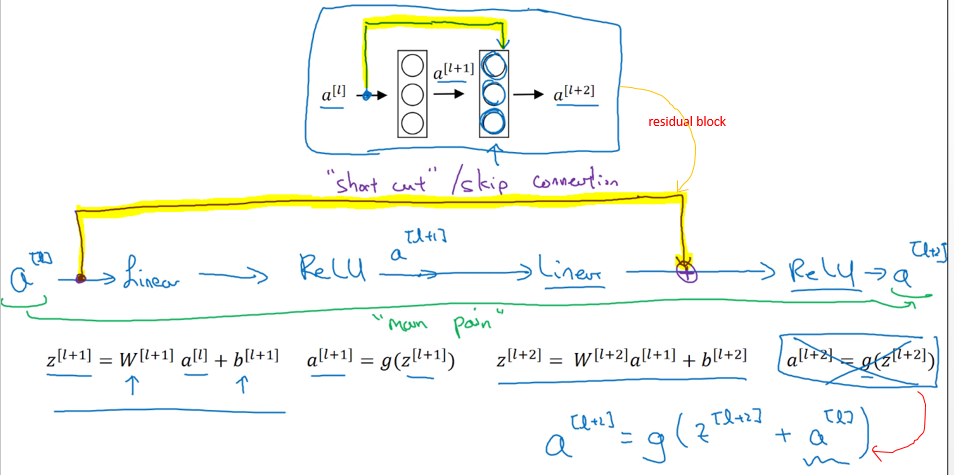 a^[l] a^[l+1] a^[l+2]
residual block
"short cut" / skip connection
a^[l] Linear ReLU a^[l+1] Linear ReLU a^[l+2]
"main pain"
z^[l+1] = W^[l+1] a^[l] + b^[l+1] a^[l+1] = g(z^[l+1]) z^[l+2] = W^[l+2]a^[l+1] + b^[l+2] a^[l+2] = g(z^[l+2])
a^[l+2] = g(z^[l+2] + a^[l])